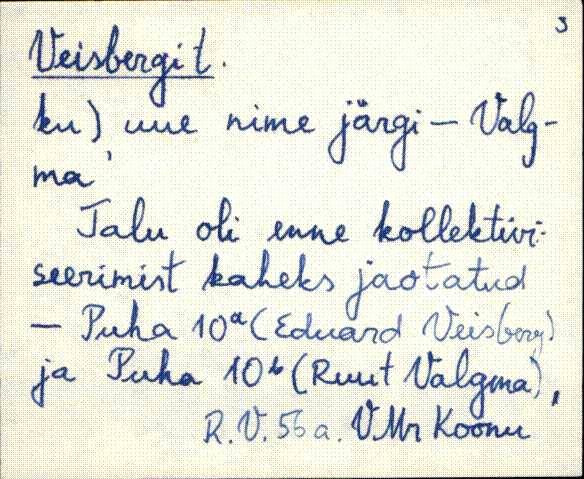 3
Veisbergi t.
ku) uue nime järgi – Valg-
ma'
Talu oli enne kollektivi-
seerimist kaheks jaotatud
– Puha 10ᵃ (Eduard Veisberg)
ja Puha 10ᵇ (Ruut Valgma),
R.V. 56 a. VMr Koonu